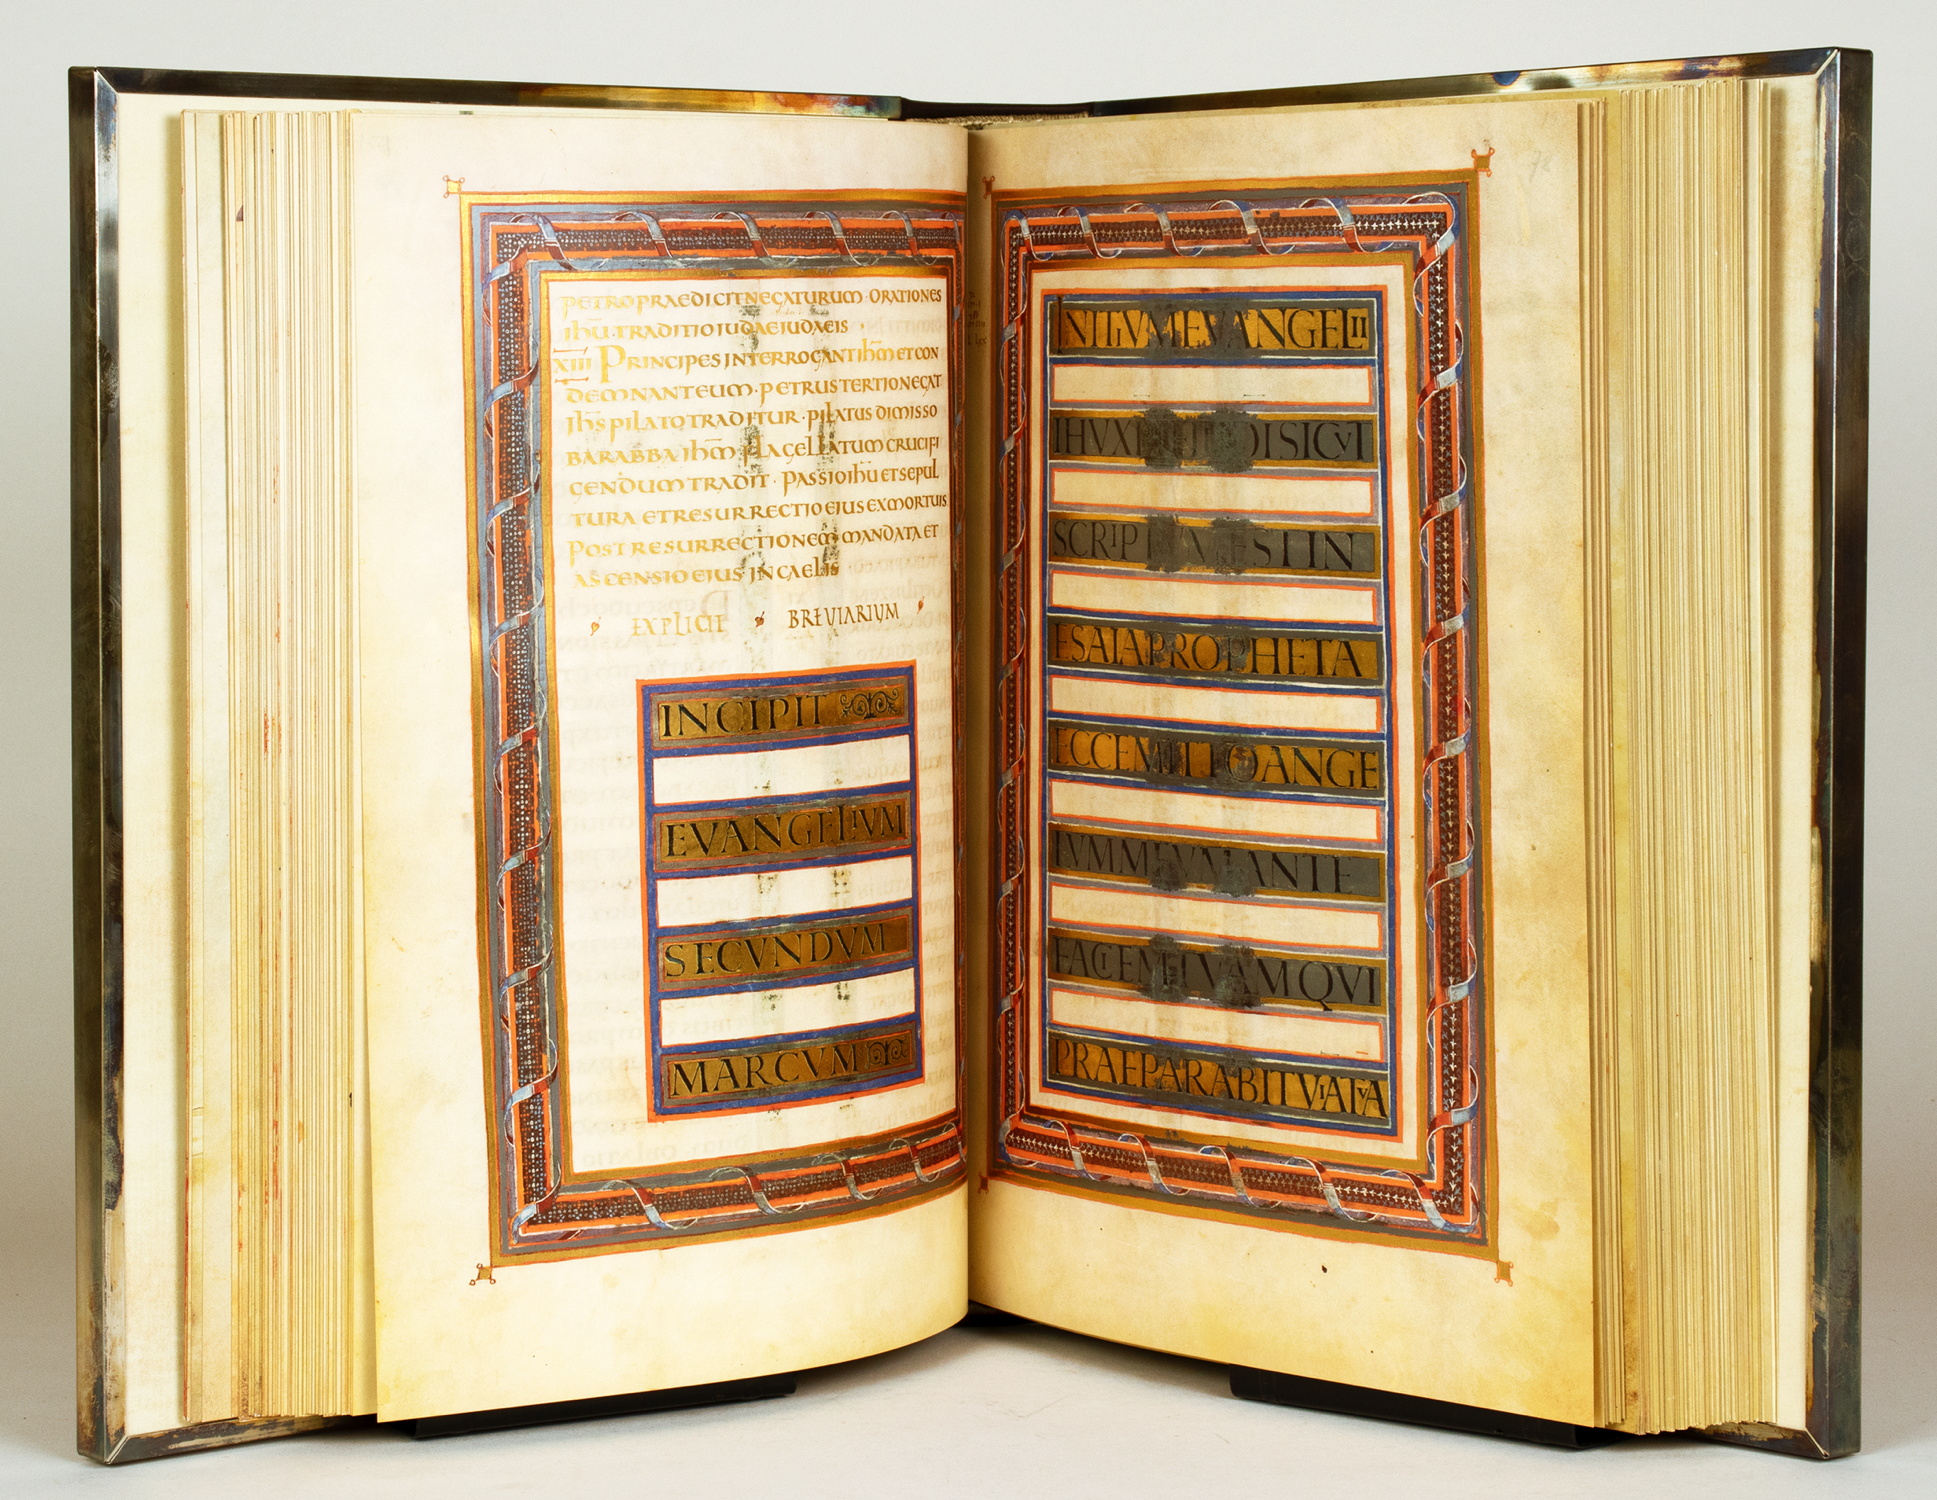 PETRO PRAEDICIT NEGATURUM · ORATIONES
IHU · TRADITIO IUDAE IUDAEIS
XIII PRINCIPES INTERROGANT IHM ET CON
DEMNANT EUM · PETRUS TERTIO NEGAT
IHS PILATO TRADITUR · PILATUS DIMISSO
BARABBA IHM FLAGELLATUM CRUCIFI
GENDUM TRADIT · PASSIO IHU ET SEPUL
TURA ET RESURRECTIO EIUS EX MORTUIS
POST RESURRECTIONEM MANDATA ET
ASCENSIO EIUS IN CAELIS
EXPLICIT BREVIARIUM
INCIPIT
EVANGELIVM
SECVNDVM
MARCVM
INITIVM EVANGELII
IHV XPI DI SICVT
SCRIPTVM EST IN
ESAIA PROPHETA
ECCE MITTO ANGE
LVM MEVM ANTE
FACIEM TVAM QVI
PRAEPARABIT VIA TVA
78